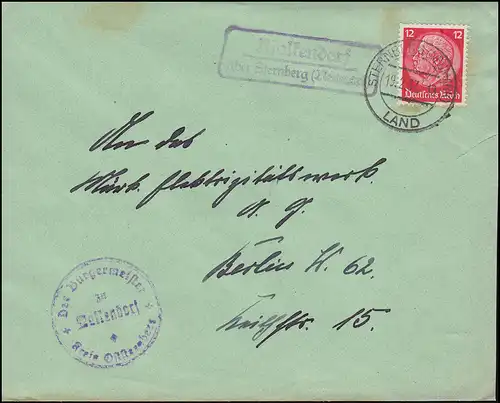 Wallendorf
über Sternberg (Neumark)
12 12
Deutsches Reich
STERNBERG (NEUMARK)
LAND
An das
Märk. Elektrizitätswerk.
A. G.
Berlin W. 62.
Keithstr. 15.
Der Bürgermeister
zu
Wallendorf
Kreis Oststernberg